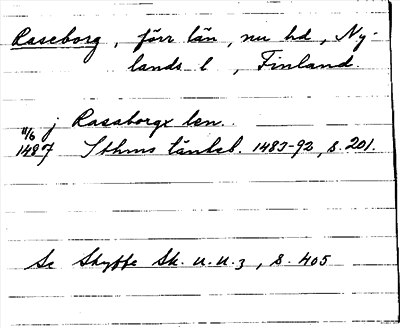 Raseborg, förr län, nu hd, Ny-
lands l, Finland.
11/6 j Rasaborgx len.
1487 Sthms tänkeb. 1483-92, s. 201.
Se Skyffe Sk. U.U. 3, s. 405